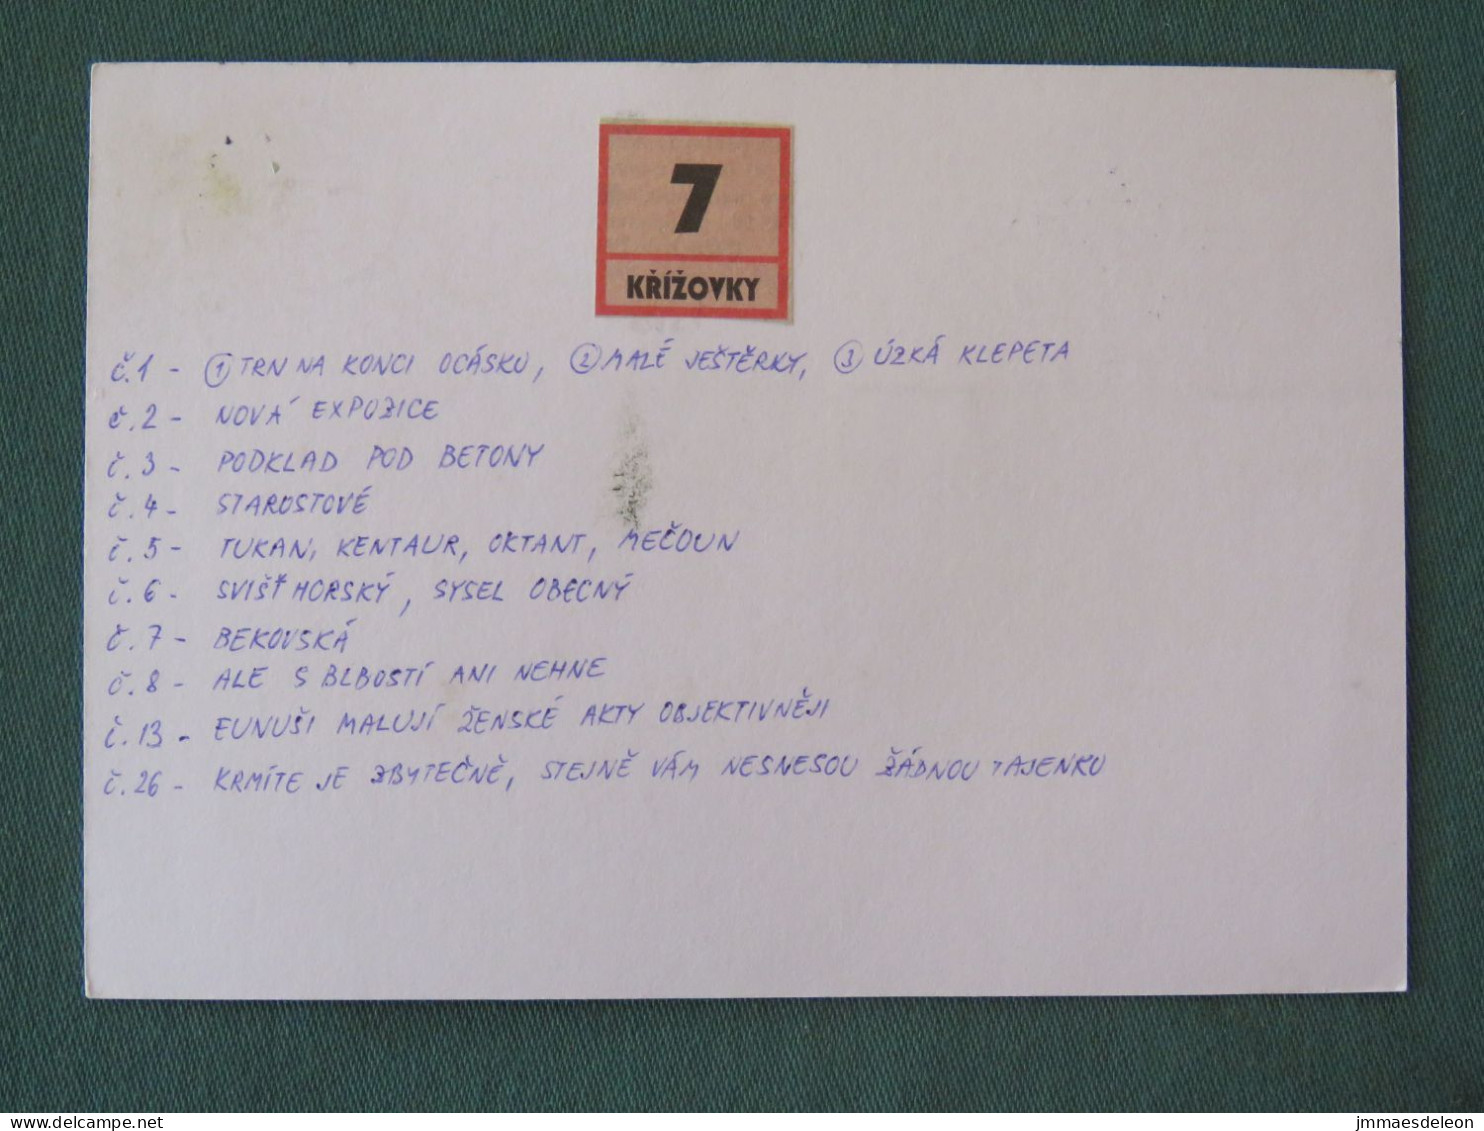 7
KŘÍŽOVKY
č.1 - ① TRN NA KONCI OCÁSKU, ② MALÉ JEŠTĚRKY, ③ ÚZKÁ KLEPETA
č.2 - NOVÁ EXPOZICE
č.3 - PODKLAD POD BETONY
č.4 - STAROSTOVÉ
č.5 - TUKAN, KENTAUR, OKTANT, MEČOUN
č.6 - SVIŠŤ HORSKÝ, SYSEL OBECNÝ
č.7 - BEKOVSKÁ
č.8 - ALE S BLBOSTÍ ANI NEHNE
č.13 - EUNUŠI MALUJÍ ŽENSKÉ AKTY OBJEKTIVNĚJI
č.26 - KRMÍTE JE ZBYTEČNĚ, STEJNĚ VÁM NESNESOU ŽÁDNOU TAJENKU
delcampe.net
jmmaesdeleon